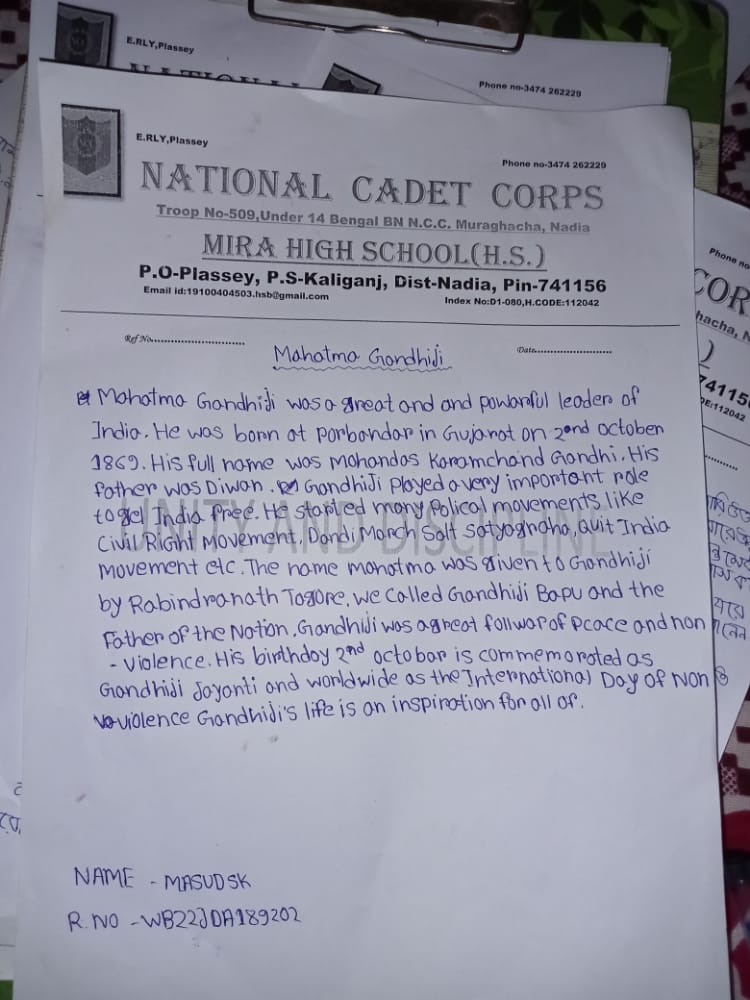 E.RLY,Plassey
Phone no-3474 262229
E.RLY,Plassey
Phone no-3474 262229
NATIONAL CADET CORPS
Troop No-509,Under 14 Bengal BN N.C.C. Muraghacha, Nadia
MIRA HIGH SCHOOL(H.S.)
P.O-Plassey, P.S-Kaliganj, Dist-Nadia, Pin-741156
Email id:19100404503.hsb@gmail.com
Index No:D1-080,H.CODE:112042
Ref No..............................
Date..........................
Mahatma Gandhiji
Mahatma Gandhiji was a great and and powarful leader of
India. He was born at porbandar in Gujarat on 2nd october
1869. His full name was Mohandas Karamchand Gandhi. His
father was Diwan. Gandhiji played a very important role
to gel India free. He started many Polical movements like
Civil Right Movement, Dandi March Salt Satyagraha, Quit India
movement etc. The name mahatma was given to Gandhiji
by Rabindranath Tagore. we called Gandhiji Bapu and the
Father of the Nation. Gandhiji was a great follwar of Peace and non
- violence. His birthday 2nd octobar is commemorated as
Gandhiji Jayanti and worldwide as the International Day of Non
violence Gandhiji's life is an inspiration for all of.
UNITY AND DISCIPLINE
NAME - MASUD SK
R.NO - WB22JDA189202
Phone no
COR
hacha, N
)
74115
DE:112042